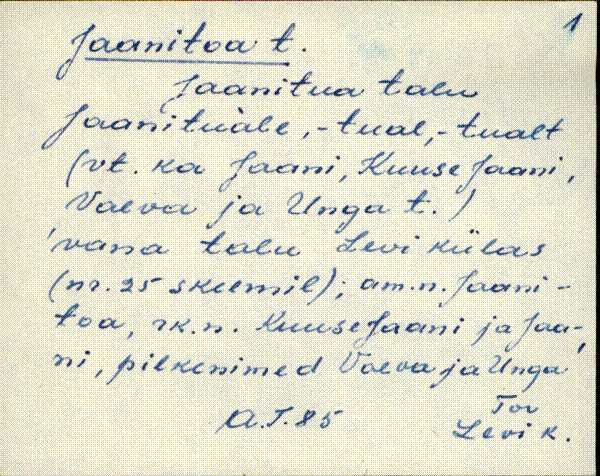 1
Jaanitoa t.
Jaanitua talu
Jaanituale, -tual, -tualt
(vt. ka Jaani, Kuuse Jaani,
Vaeva ja Unga t.)
'vana talu Levi külas
(nr. 25 skeemil); am.n. Jaani-
toa, rk.n. Kuuse Jaani ja Jaa-
ni, pilkenimed Vaeva ja Unga'
A.T. 85
Tor
Levi k.